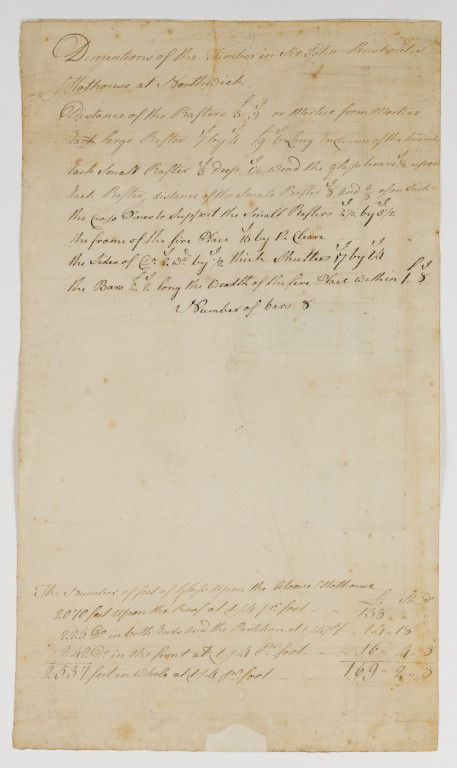 Dementions of the Timber in Sir John Rushout's
Hothouse, at Northwick
Distance of the Rafters 3f 9I or Mortice from Mortice
Each large Rafter 7I by 4I 19f 6I Long Exclusive of the tenants
Each Small Rafter 3I Deep broad the glass bears upon
Each Rafter, distance of the Small Rafter 8I and of an Inch
the Cross Pines to Support the Small Rafters 2I½ by 3I½
the frame of the fire Place by Cleare
the Sides of Do 2I Wd by I½ thick Shutters 7I by 14I
the Bars 2f 2I long the Weadth of the fire Place within 1f 8I
Number of bars 8
The Number of feet of Glass Upon the Above Hothouse
£ Sh D
2070 feet upon the Roof at 1/4 pr foot 138 " "
225 Do in both Ends and the Partition at 1/4 pf 14 " 18
242 Do in the front at 1/4 pr foot 16 " 4 " 8
2537 feet in Whole at 1/4 pr foot 169 " 2 " 8